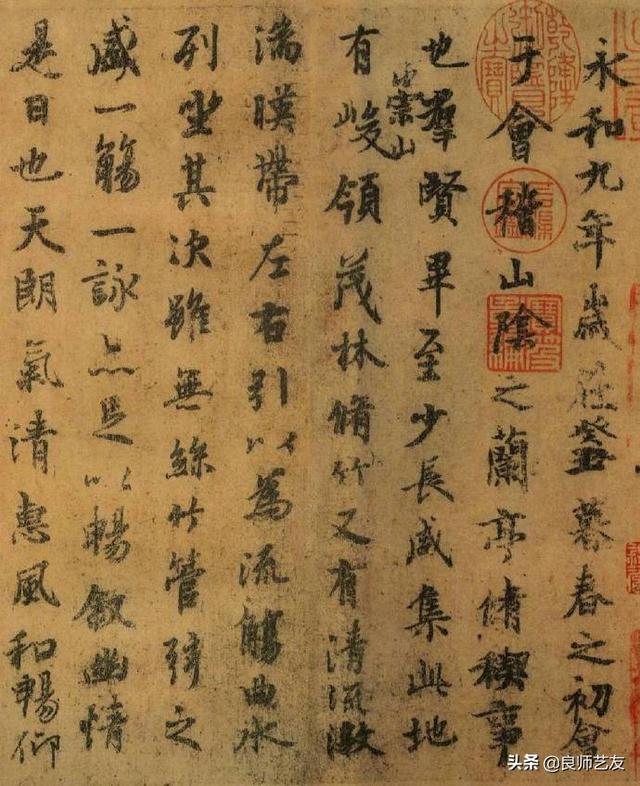 永和九年歲在癸丑暮春之初會
于會稽山陰之蘭亭脩稧事
也羣賢畢至少長咸集此地
有崇山峻領茂林脩竹又有清流激
湍暎帶左右引以為流觴曲水
列坐其次雖無絲竹管弦之
盛一觴一詠亦足以暢敘幽情
是日也天朗氣清惠風和暢仰
头条 @良师艺友